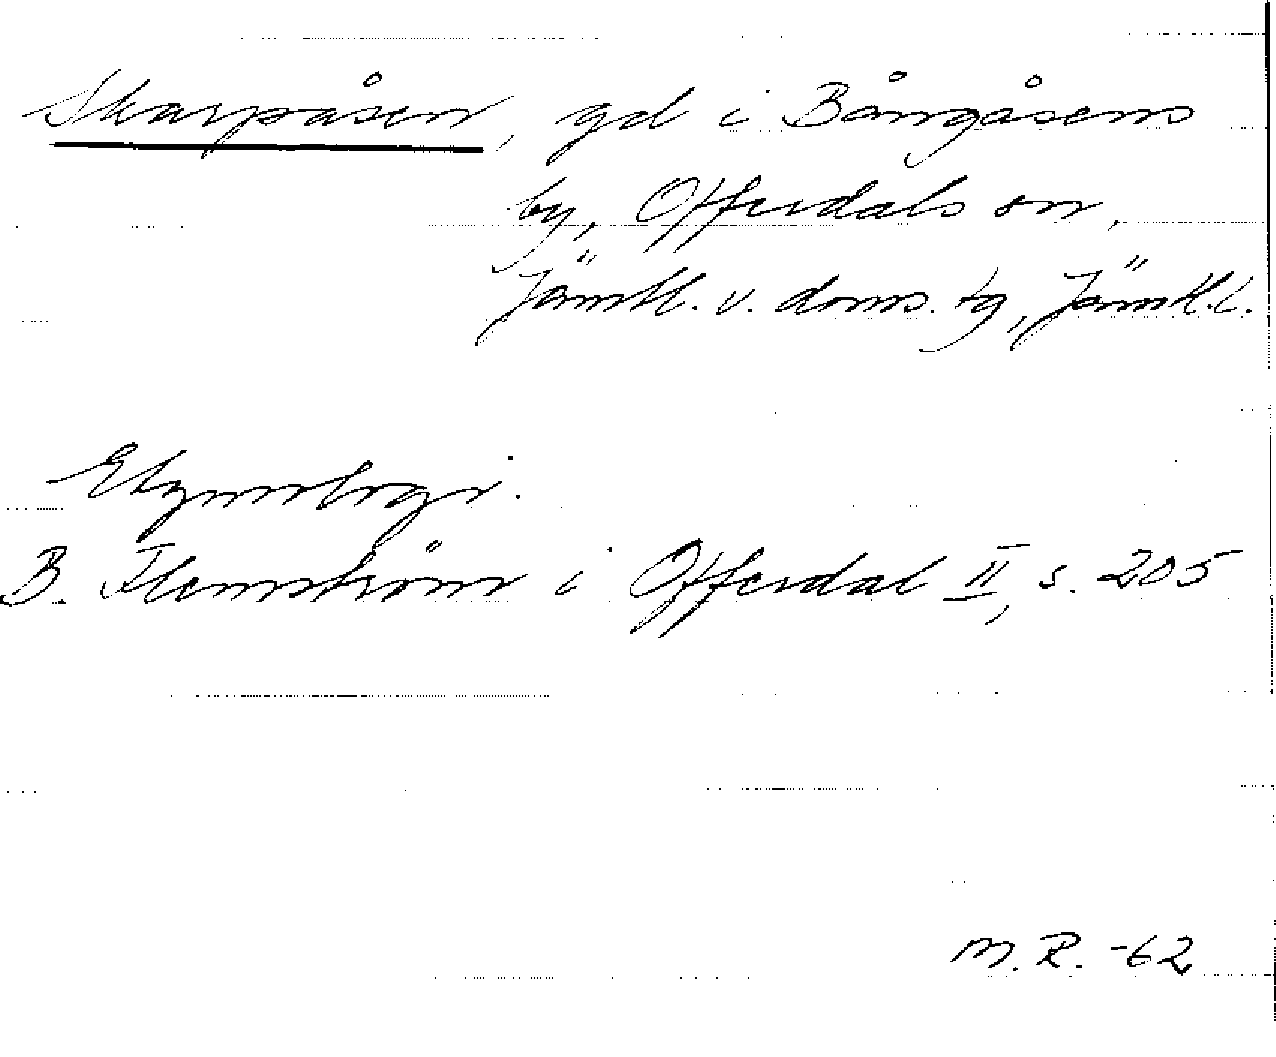 Skarpåsen, gd i Bångåsens
by, Offerdals sn,
Jämtl. v. doms. tg, Jämtl. l.
Etymologi:
B. Flemström i Offerdal II, s. 205
M. R. -62